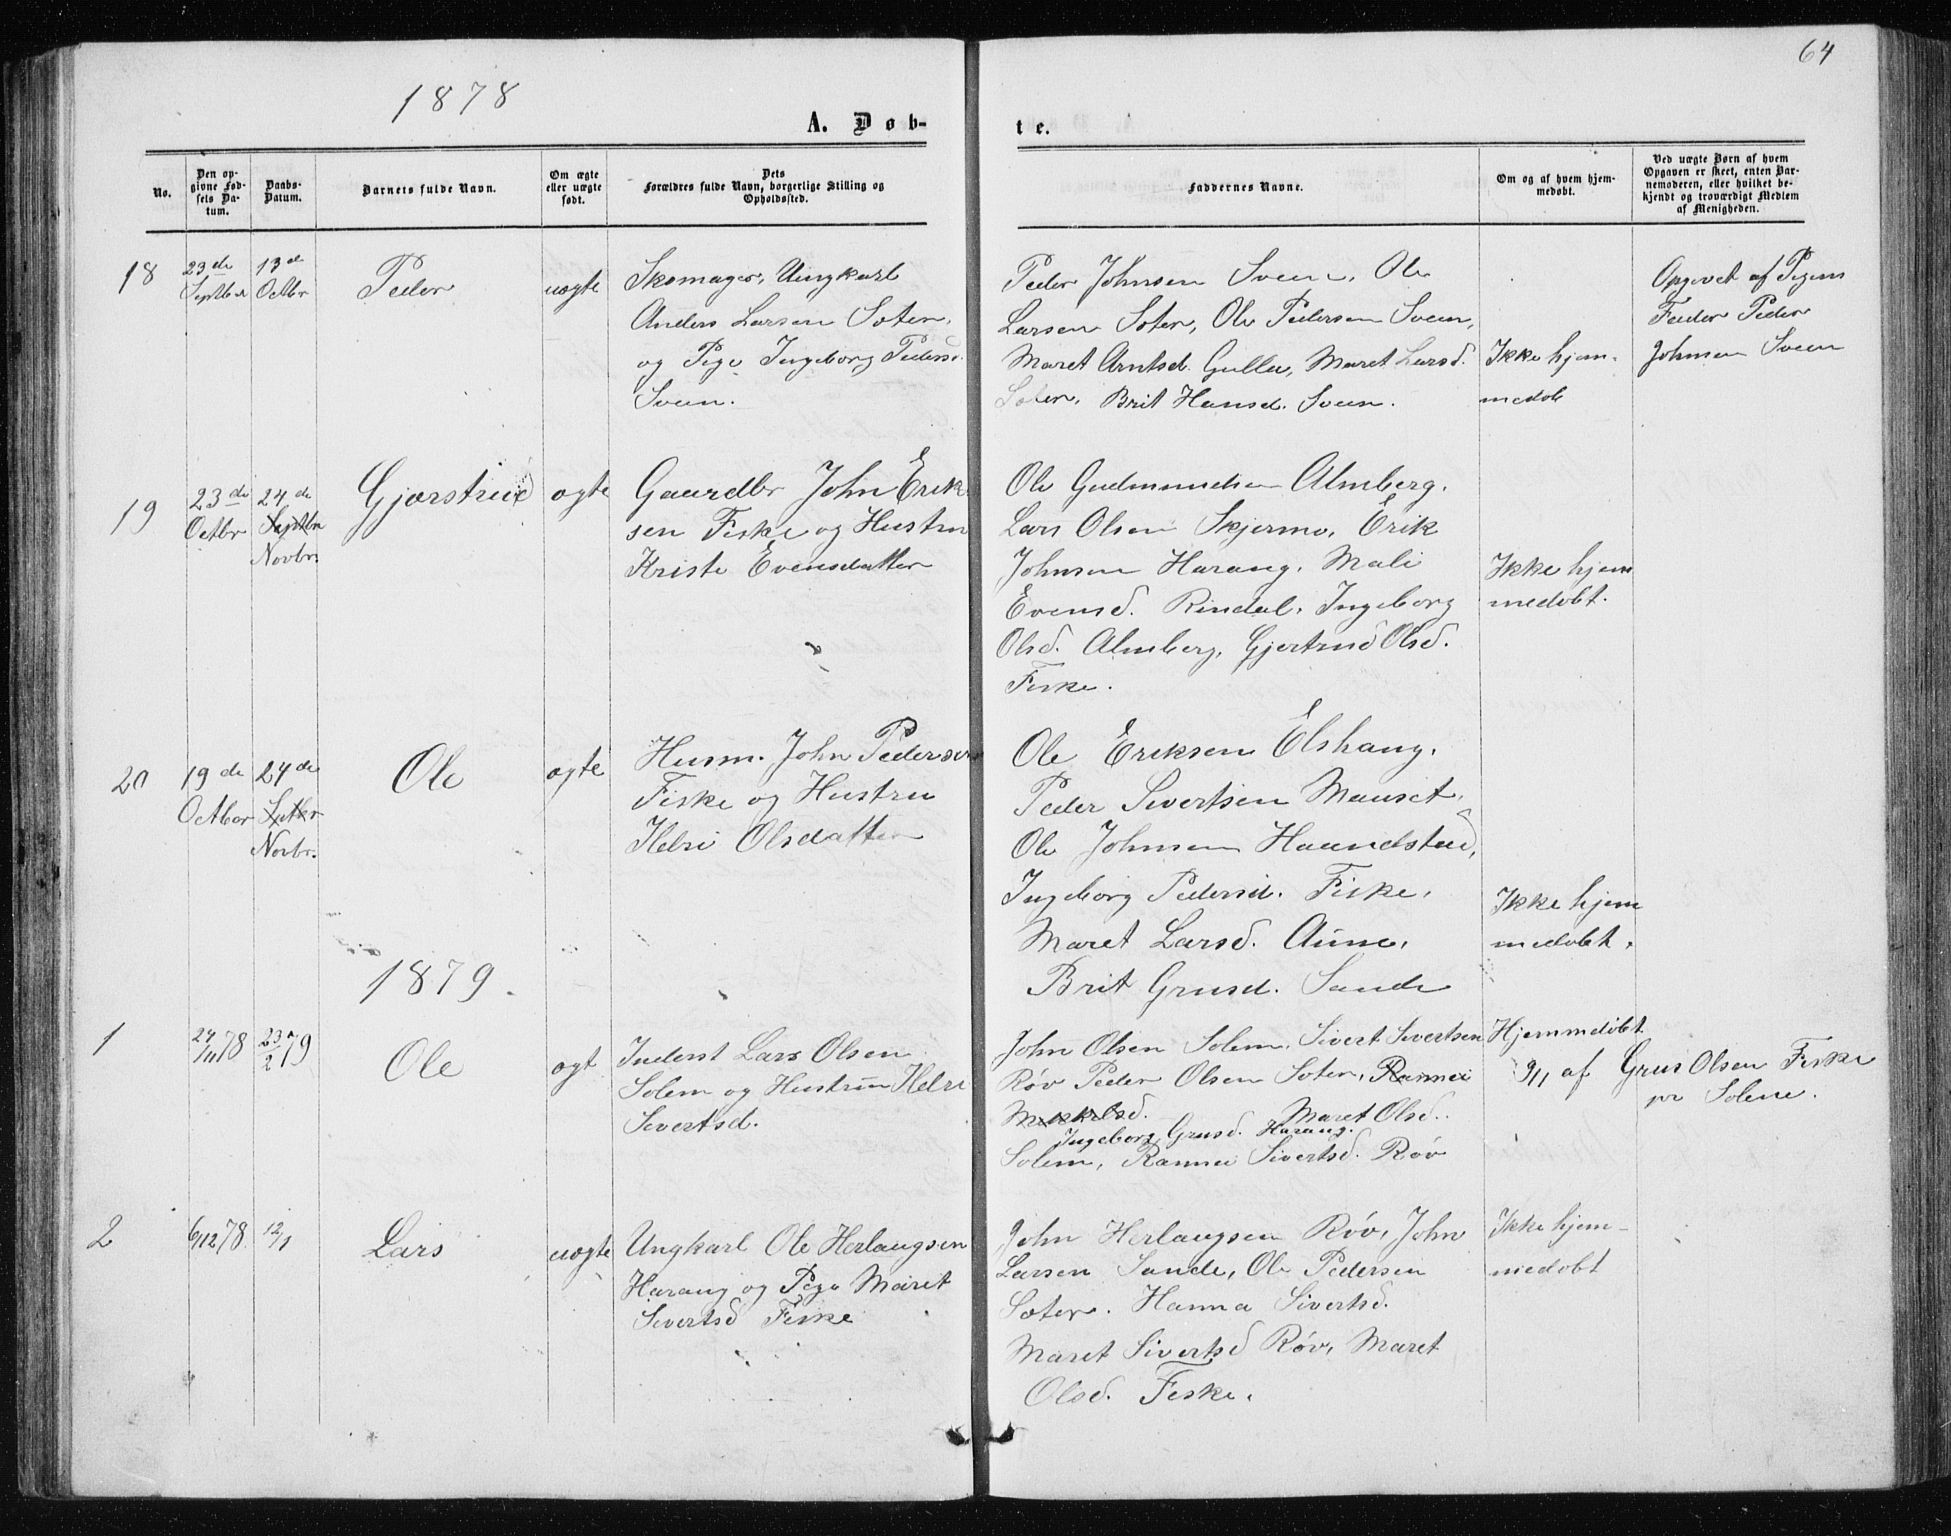 64
1878
A. Døb-
te.
No.
Den op-
givne Fød-
sels Da-
tum.
Daabs-
Datum.
Barnets fulde Navn.
Om ægte
eller uægte
født.
Dets
Forældres fulde Navn, borgerlige Stilling og
Opholdssted.
Faddernes Navne.
Om og af hvem hjem-
medøbt.
Ved uægte Børn af hvem
Opgaven er skeet, enten Bar-
nemoderen, eller hvilket be-
kjendt og troværdigt Medlem
af Menigheden.
18
23de
Septbr
13de
Octbr
Peder
uægte
Skomager, Ungkarl
Anders Larsen Soter,
og Pige Ingeborg Pedersd.
Sveen.
Peder Johnsen Sveen, Ole
Larsen Soter, Ole Pedersen Sveen,
Maret Arntsd. Gulla, Maret Larsd.
Soter, Brit Hansd. Sveen.
Ikke hjem-
medøb
Opgivet af Pigens
Fader Peder
Johnsen Sveen
19
23de
Octbr
24de
Septbr
Novbr.
Gjærstrud
ægte
Gaardbr John Erik
sen Fiske og Hustru
Kriste Evensdatter
Ole Gudmundsen Almberg,
Lars Olsen Skjermo, Erik
Johnsen Harang, Mali
Evensd. Rindal, Ingeborg
Olsd. Almberg, Gjertrud Olsd.
Fiske.
Ikke hjem
medøbt.
20
19de
Octbor
24de
Septbr
Novbr.
Ole
ægte
Husm. John Pedersen
Fiske og Hustru
Helri Olsdatter
Ole Eriksen Elshaug,
Peder Sivertsen Mauset,
Ole Johnsen Haandstad,
Ingeborg Pedersd. Fiske,
Maret Larsd. Aune,
Brit Grusd. Sande
Ikke hjem
medøbt.
1879.
1
24/11 78
23/2 79
Ole
ægt
Inderst Lars Olsen
Solem og Hustru Helri
Sivertsd.
John Olsen Solem, Sivert Sivertsen
Røv Peder Olsen Soter, Rannei
Mikkelsd. Maret Olsd.
Ingeborg Grusd. Harang.
Solem, Rannei Sivertsd. Røv
Hjemmedøbt
9/11 af Grus Olsen Fiske
pr Solem.
2
6/12 78
12/1
Lars
uægte
Ungkarl Ole Herlaugsen
Harang og Pige Maret
Sivertsd Fiske
John Herlaugsen Røv, John
Larsen Sande, Ole Pedersen
Soter. Hanna Sivertsd.
Maret Sivertsd Røv, Maret
Olsd. Fiske.
Ikke hjem-
medøbt